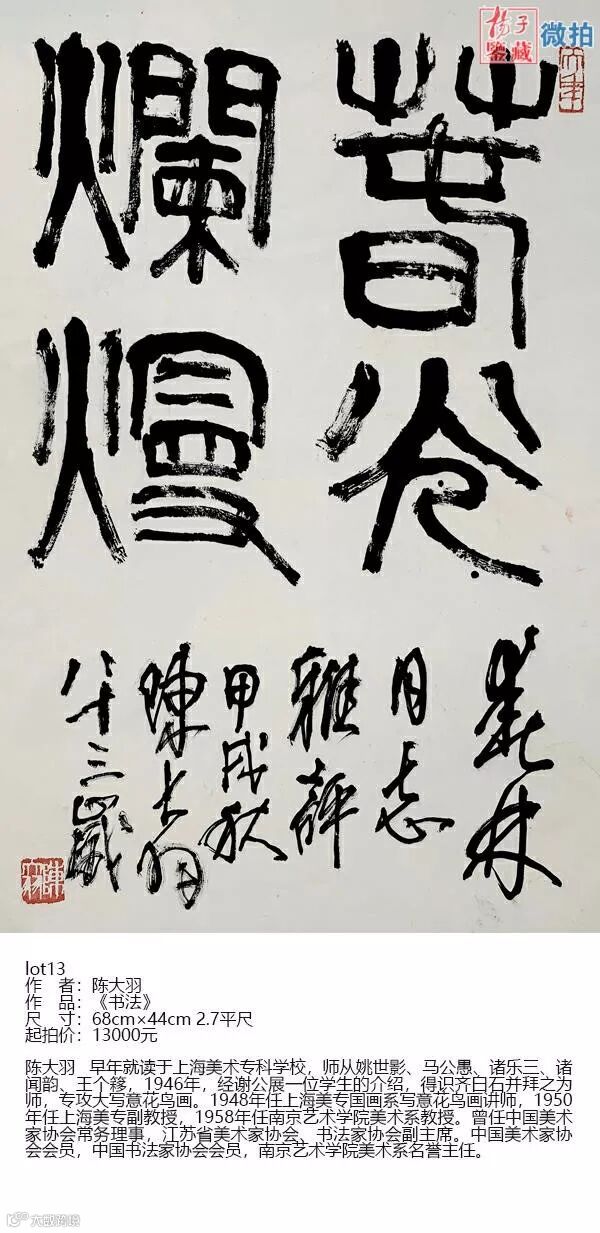 揚子
鑒藏
微拍
春光
爛熳
林
同志
雅評
甲戌秋
陳大羽
八十三歲
lot13
作 者：陈大羽
作 品：《书法》
尺 寸：68cm×44cm 2.7平尺
起拍价：13000元
陈大羽 早年就读于上海美术专科学校，师从姚世影、马公愚、诸乐三、诸
闻韵、王个簃，1946年，经谢公展一位学生的介绍，得识齐白石并拜之为
师，专攻大写意花鸟画。1948年任上海美专国画系写意花鸟画讲师，1950
年任上海美专副教授，1958年任南京艺术学院美术系教授。曾任中国美术
家协会常务理事，江苏省美术家协会、书法家协会副主席。中国美术家协
会会员，中国书法家协会会员，南京艺术学院美术系名誉主任。
大数跨境